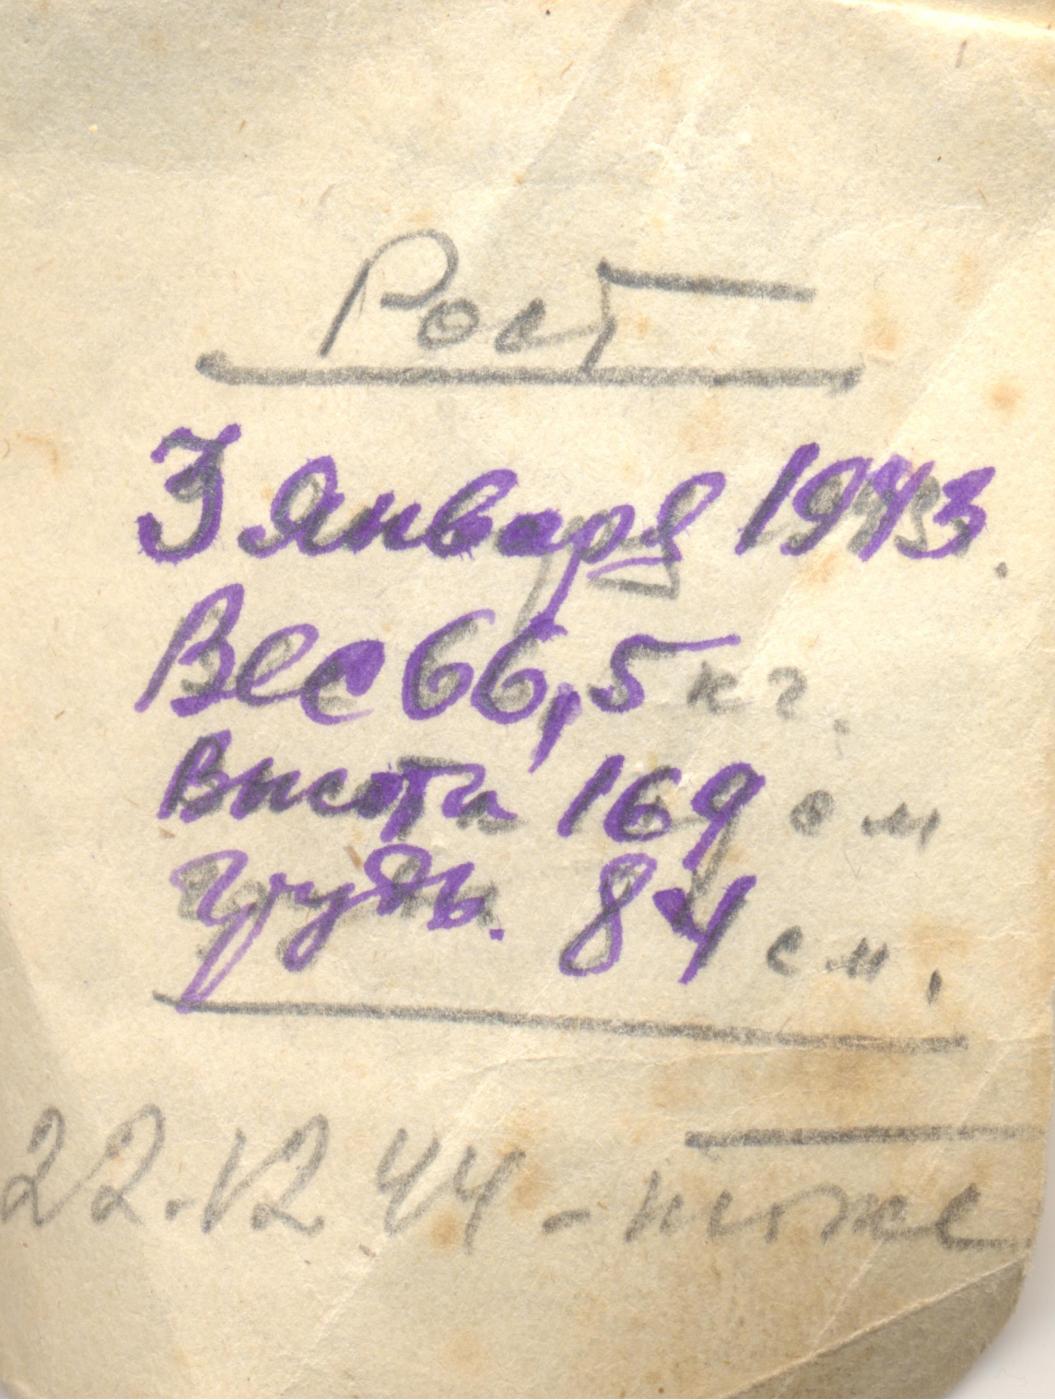 Рост
3 Января 1943.
Вес 66,5 кг.
Высота 169 см
грудь. 84 см.
22.12 44 -